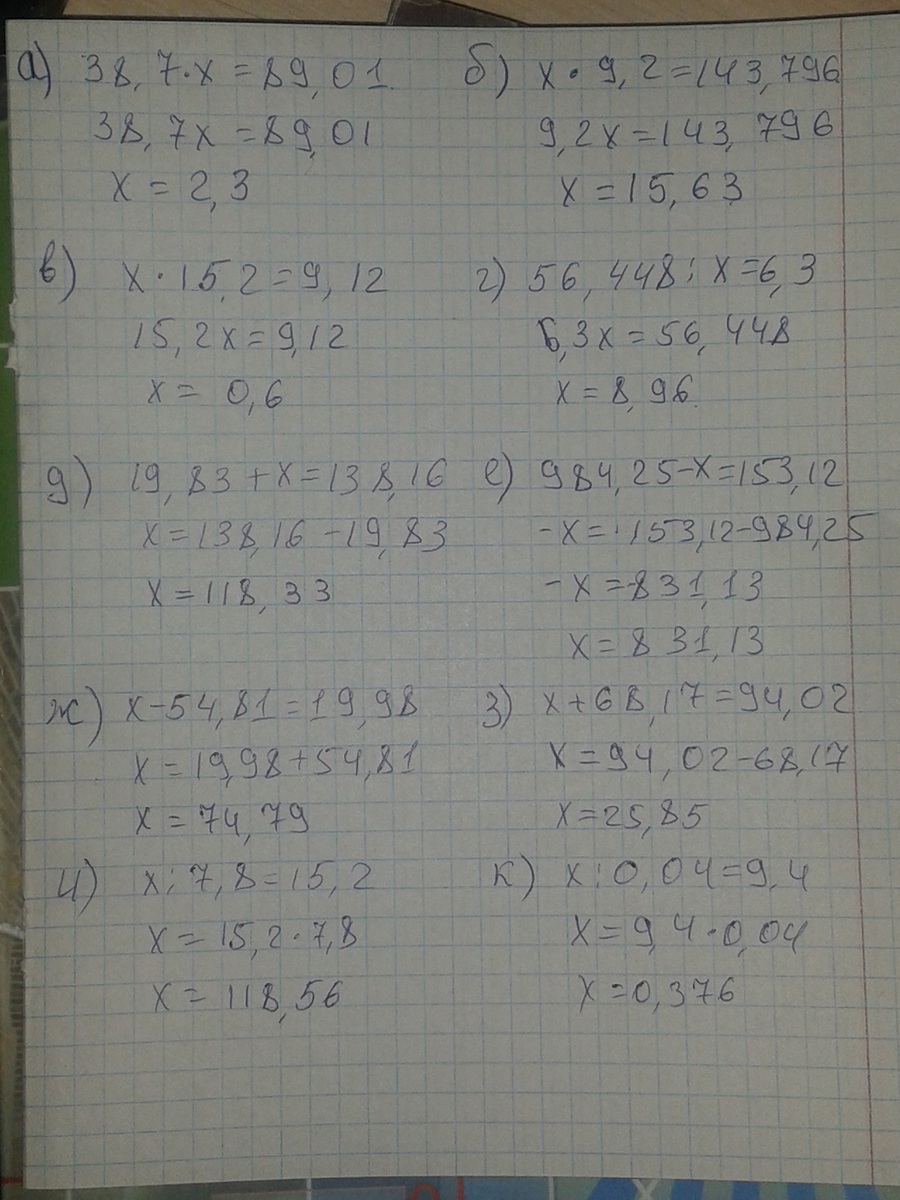 а) 38,7·x=89,01
38,7x=89,01
x=2,3
б) x·9,2=143,796
9,2x=143,796
x=15,63
в) x·15,2=9,12
15,2x=9,12
x=0,6
г) 56,448:x=6,3
6,3x=56,448
x=8,96
д) 19,83+x=138,16
x=138,16-19,83
x=118,33
е) 984,25-x=153,12
-x=153,12-984,25
-x=-831,13
x=831,13
ж) x-54,81=19,98
x=19,98+54,81
x=74,79
з) x+68,17=94,02
x=94,02-68,17
x=25,85
и) x:7,8=15,2
x=15,2·7,8
x=118,56
к) x:0,04=9,4
x=9,4·0,04
x=0,376